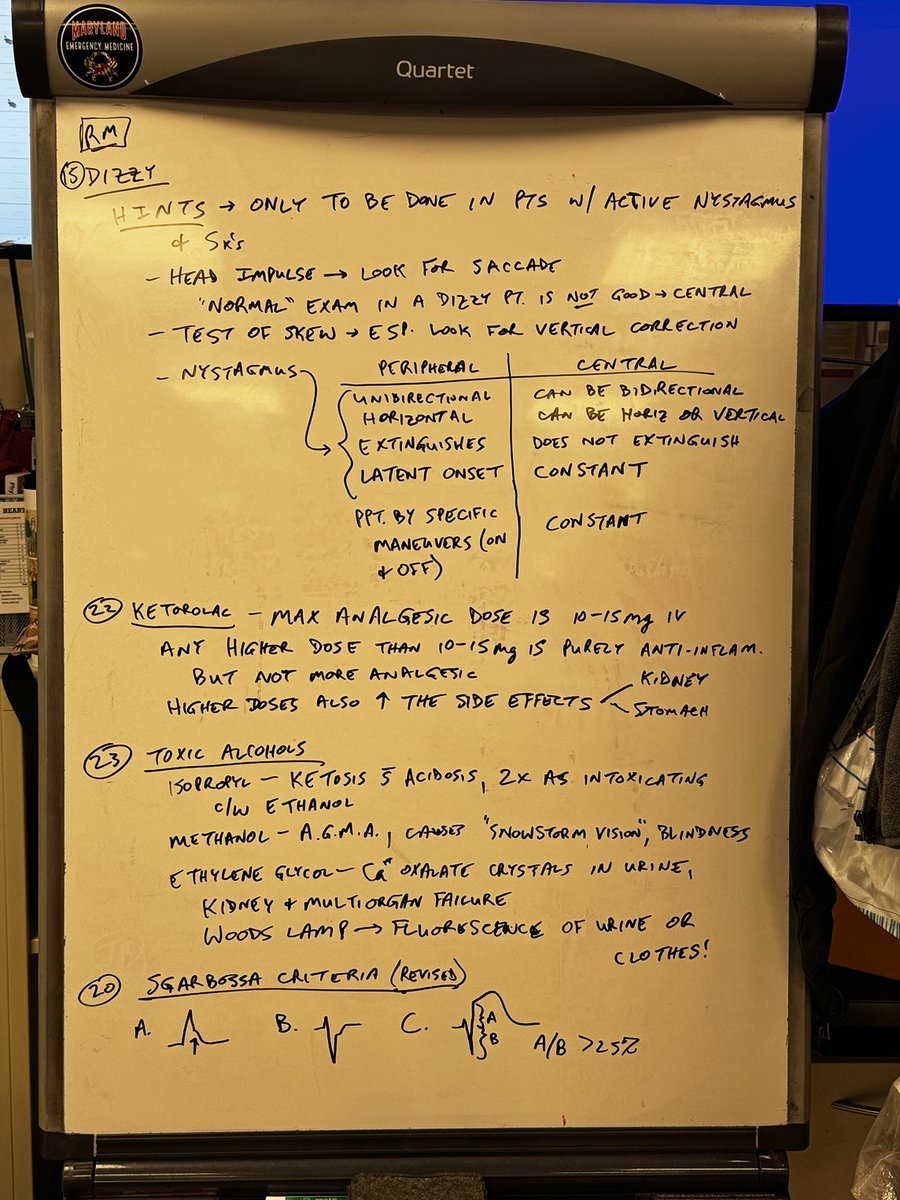 MARYLAND
EMERGENCY MEDICINE
Quartet
RM
15 DIZZY
HINTS → ONLY TO BE DONE IN PTS W/ ACTIVE NYSTAGMUS
& Sx's
- HEAD IMPULSE → LOOK FOR SACCADE
"NORMAL" EXAM IN A DIZZY PT. IS NOT GOOD → CENTRAL
- TEST OF SKEW → ESP. LOOK FOR VERTICAL CORRECTION
- NYSTAGMUS
PERIPHERAL CENTRAL
UNIDIRECTIONAL CAN BE BIDIRECTIONAL
HORIZONTAL CAN BE HORIZ OR VERTICAL
EXTINGUISHES DOES NOT EXTINGUISH
LATENT ONSET CONSTANT
PPT. BY SPECIFIC CONSTANT
MANEUVERS (ON
& OFF)
22 KETOROLAC - MAX ANALGESIC DOSE IS 10-15mg IV
ANY HIGHER DOSE THAN 10-15mg IS PURELY ANTI-INFLAM.
BUT NOT MORE ANALGESIC
HIGHER DOSES ALSO ↑ THE SIDE EFFECTS KIDNEY
STOMACH
23 TOXIC ALCOHOLS
ISOPROPYL - KETOSIS s̄ ACIDOSIS, 2X AS INTOXICATING
C/W ETHANOL
METHANOL - A.G.M.A., CAUSES "SNOWSTORM VISION", BLINDNESS
ETHYLENE GLYCOL - Ca⁺⁺ OXALATE CRYSTALS IN URINE,
KIDNEY + MULTIORGAN FAILURE
WOODS LAMP → FLUORESCENCE OF URINE OR
CLOTHES!
20 SGARBOSSA CRITERIA (REVISED)
A. B. C. A
B
A/B >25%
HEART